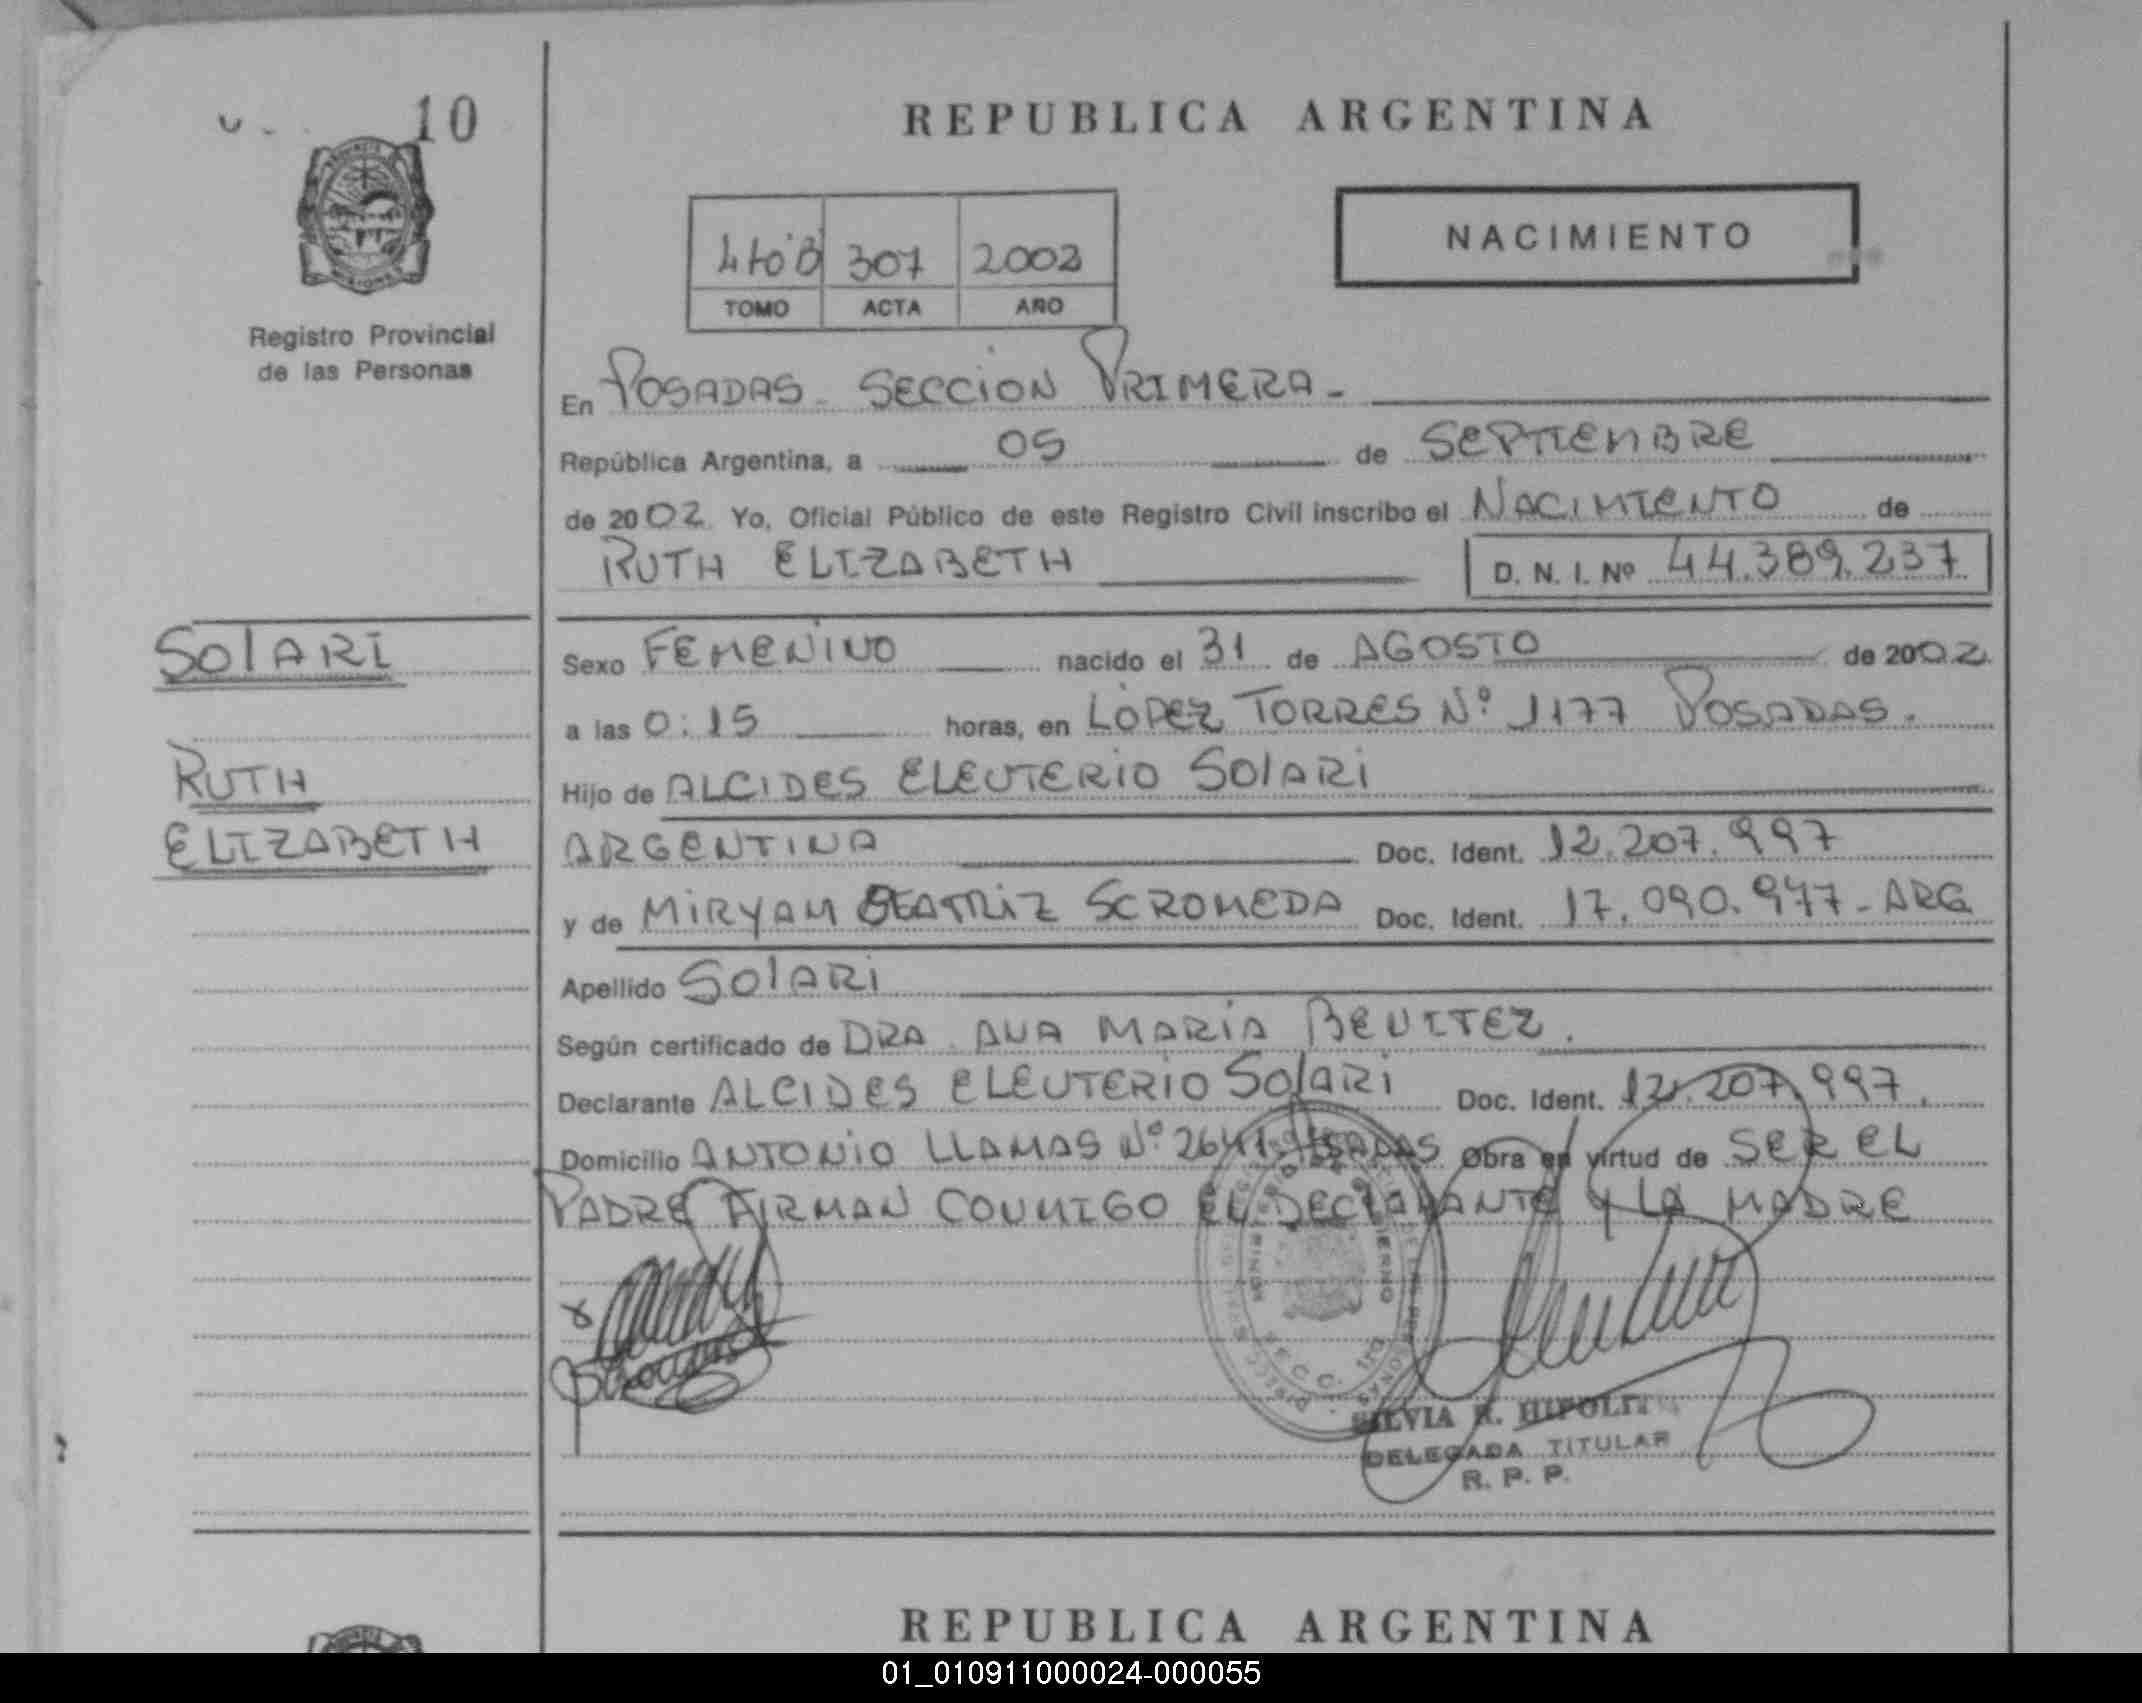 10
REPUBLICA ARGENTINA
NACIMIENTO
4to B 307 2002
TOMO ACTA AÑO
Registro Provincial
de las Personas
En POSADAS - SECCION PRIMERA -
República Argentina, a 05 de SEPTIEMBRE
de 2002 Yo, Oficial Público de este Registro Civil inscribo el NACIMIENTO de
RUTH ELIZABETH D. N. I. Nº 44.389.237
SOLARI
RUTH
ELIZABETH
Sexo FEMENINO nacido el 31 de AGOSTO de 2002
a las 0:15 horas, en LÓPEZ TORRES Nº 1177 POSADAS.
Hijo de ALCIDES ELEUTERIO SOLARI
ARGENTINA Doc. Ident. 12.207.997
y de MIRYAM BEATRIZ SCROMEDA Doc. Ident. 17.090.977-ARG
Apellido SOLARI
Según certificado de DRA. ANA MARIA BENITEZ.
Declarante ALCIDES ELEUTERIO SOLARI Doc. Ident. 12.207.997.
Domicilio ANTONIO LLAMAS Nº 2641 POSADAS Obra en virtud de SER EL
PADRE FIRMAN CONMIGO EL DECLARANTE Y LA MADRE
SILVIA R. HIPOLITO
DELEGADA TITULAR
R. P. P.
REPUBLICA ARGENTINA
01_010911000024-000055